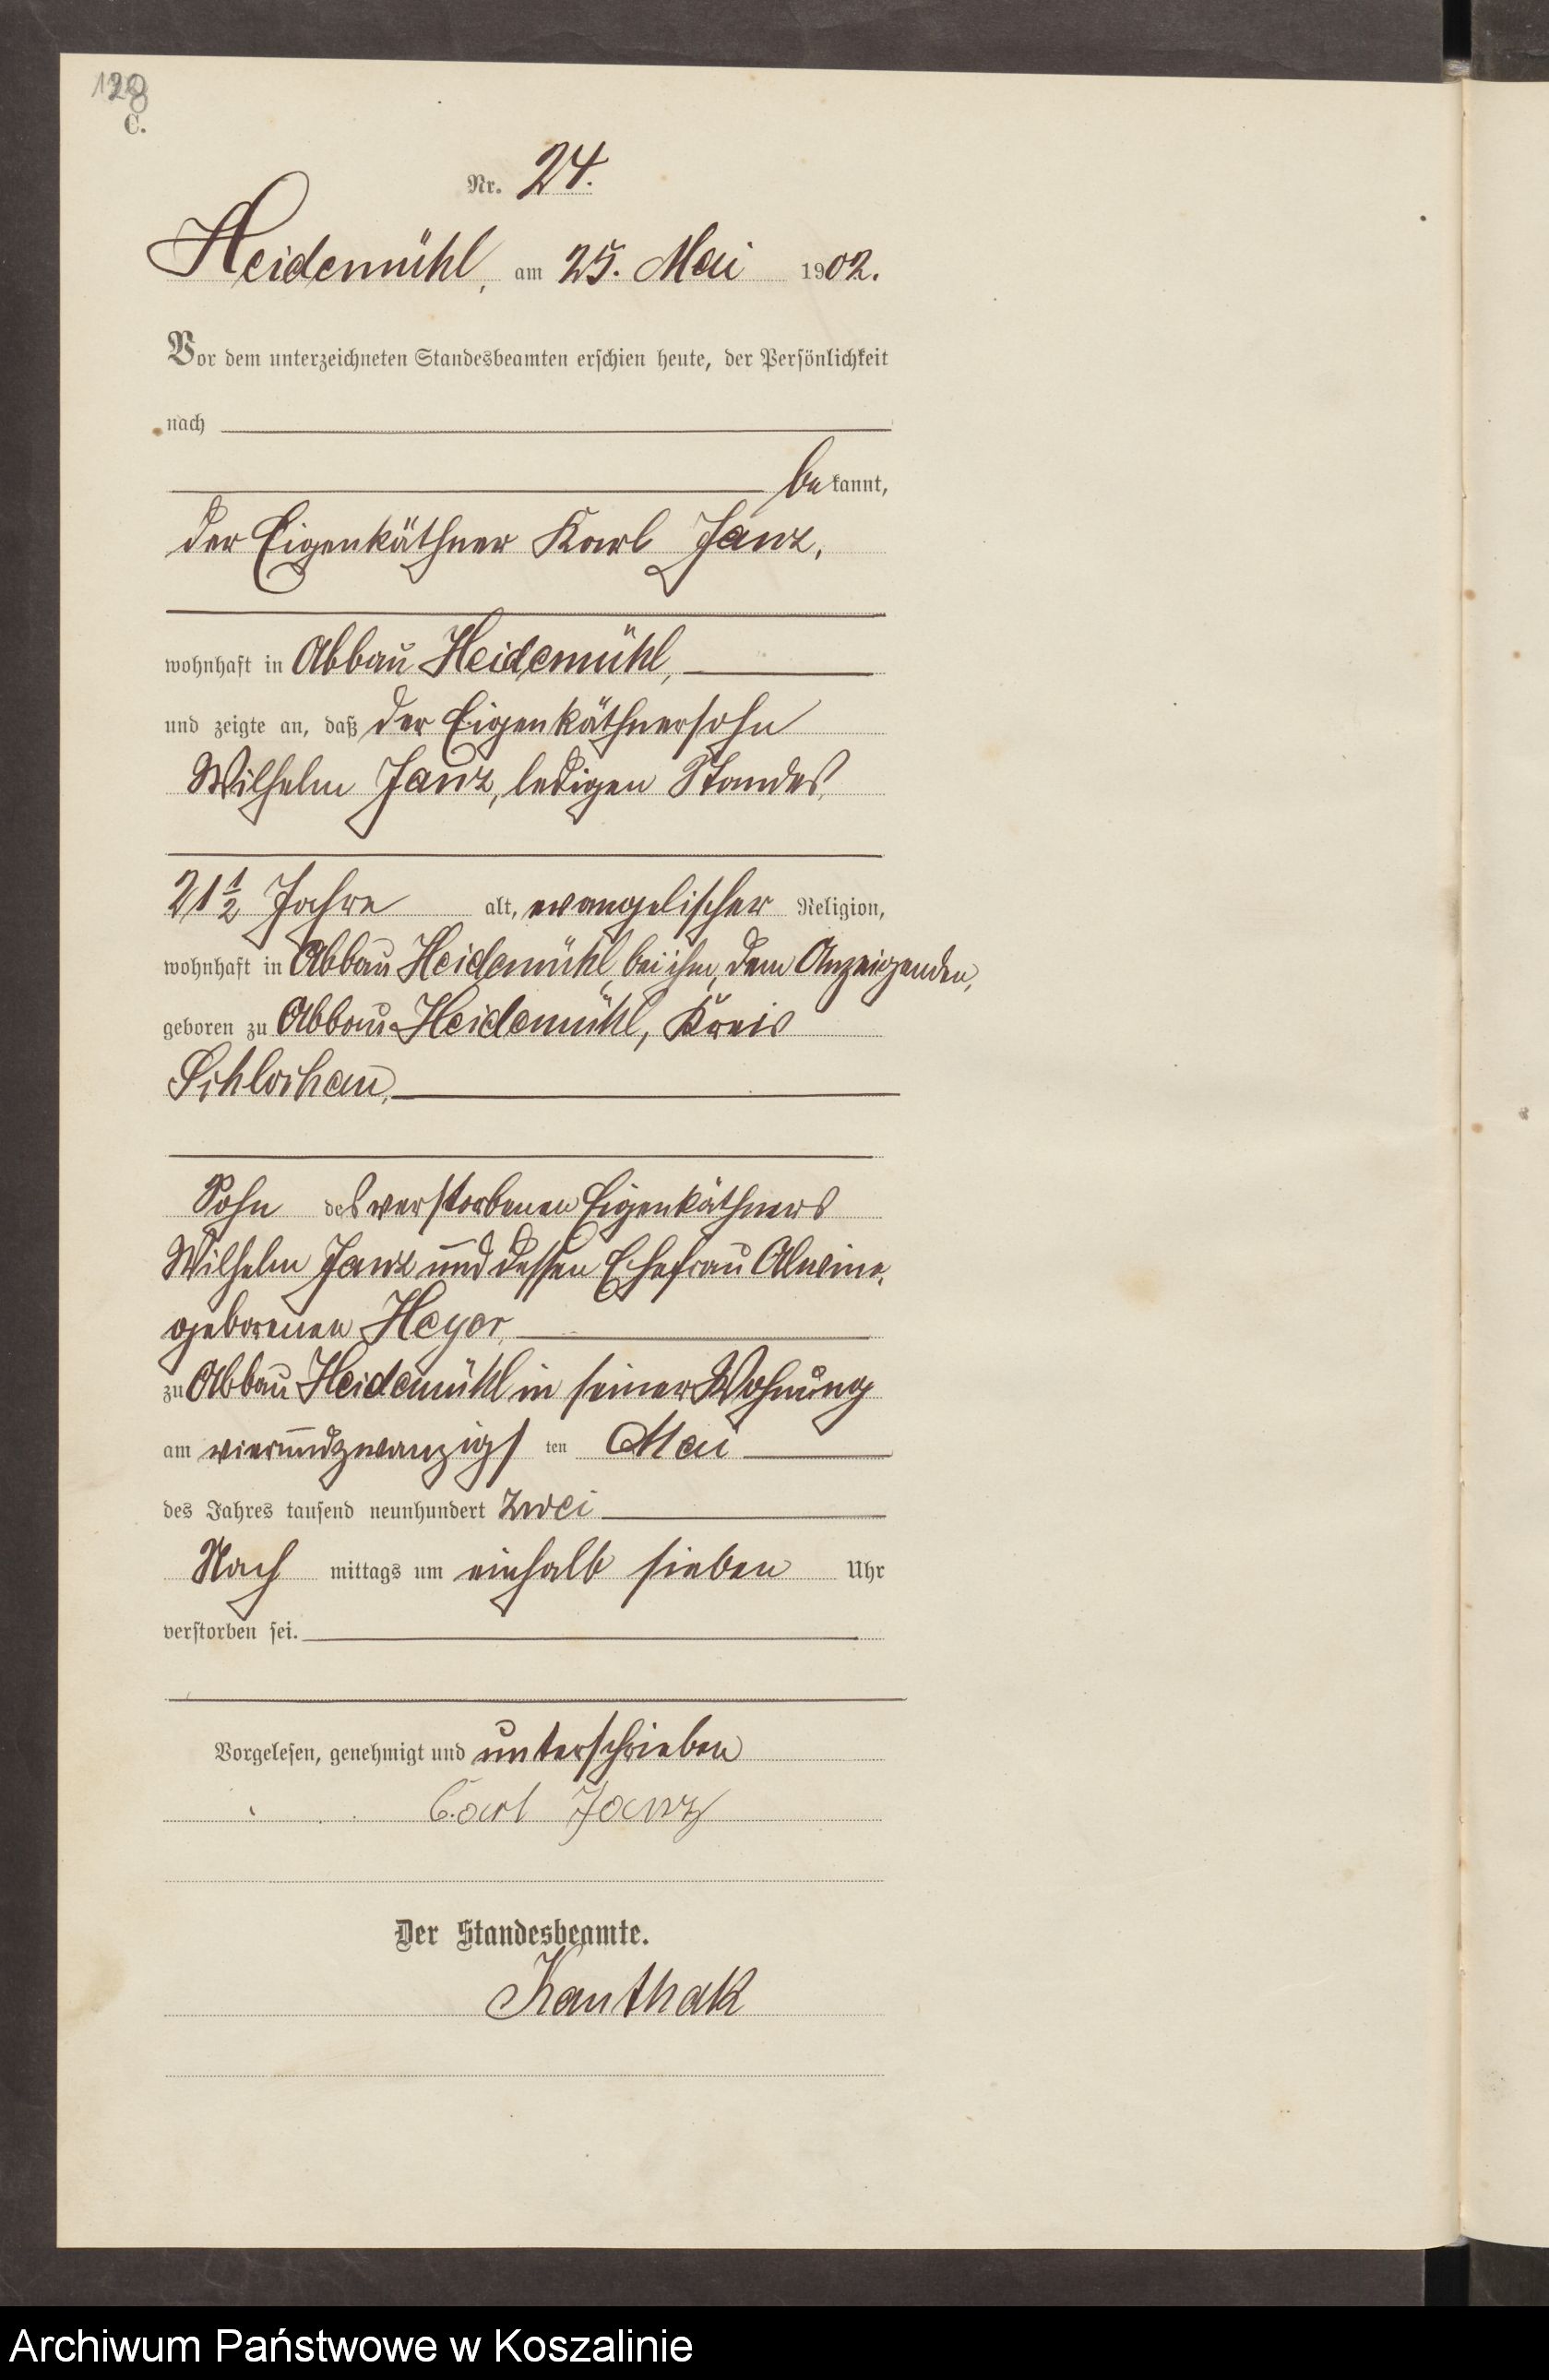 C.
Nr. 24.
Heidemühl, am 25. Mai 1902.
Vor dem unterzeichneten Standesbeamten erschien heute, der Persönlichkeit
nach
bekannt,
der Eigenkäthner Karl Janz,
wohnhaft in Abbau Heidemühl,
und zeigte an, daß der Eigenkäthnersohn
Wilhelm Janz, ledigen Standes,
21 1/2 Jahre alt, evangelischer Religion,
wohnhaft in Abbau Heidemühl, bei ihm, dem Anzeigenden,
geboren zu Abbau Heidemühl, Kreis
Schlochau,
Sohn des verstorbenen Eigenkäthners
Wilhelm Janz und dessen Ehefrau Alwine,
geborenen Heyer,
zu Abbau Heidemühl in seiner Wohnung
am vierundzwanzigsten Mai
des Jahres tausend neunhundert zwei
Nachmittags um einhalb sieben Uhr
verstorben sei.
Vorgelesen, genehmigt und unterschrieben
Carl Janz
Der Standesbeamte.
Kanthak
Archiwum Państwowe w Koszalinie